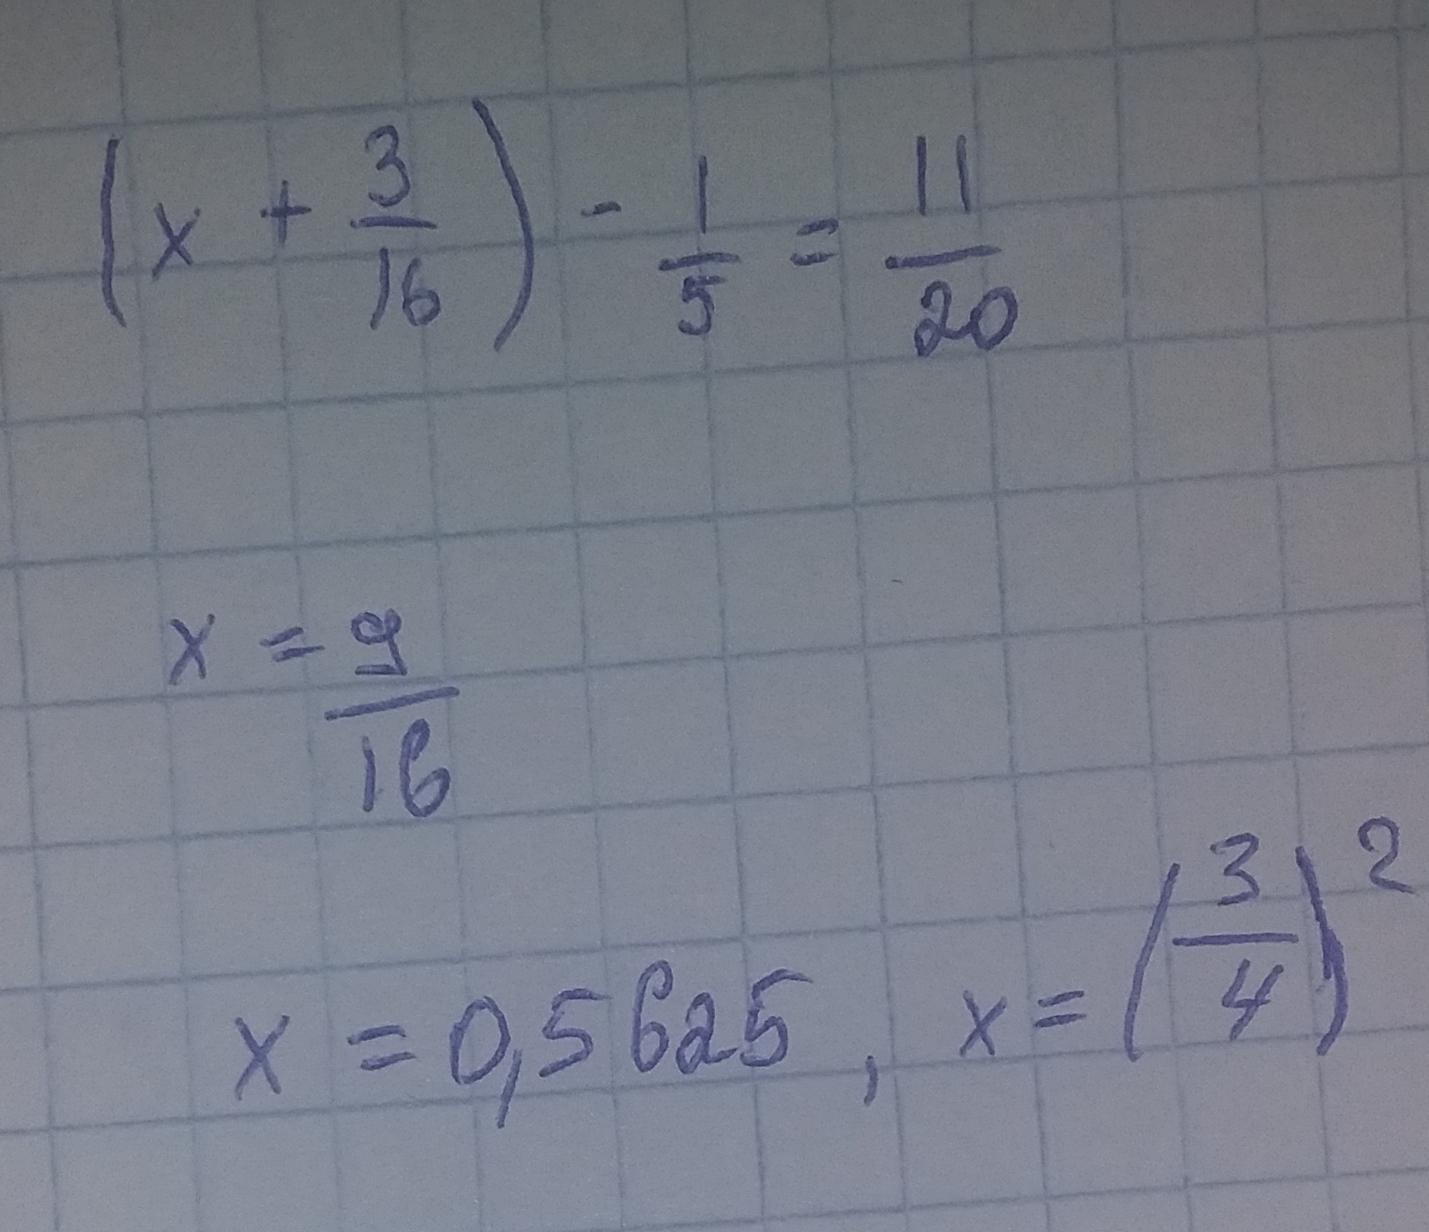 (x + 3/16) - 1/5 = 11/20
x = 9/16
x = 0,5625, x = (3/4)²